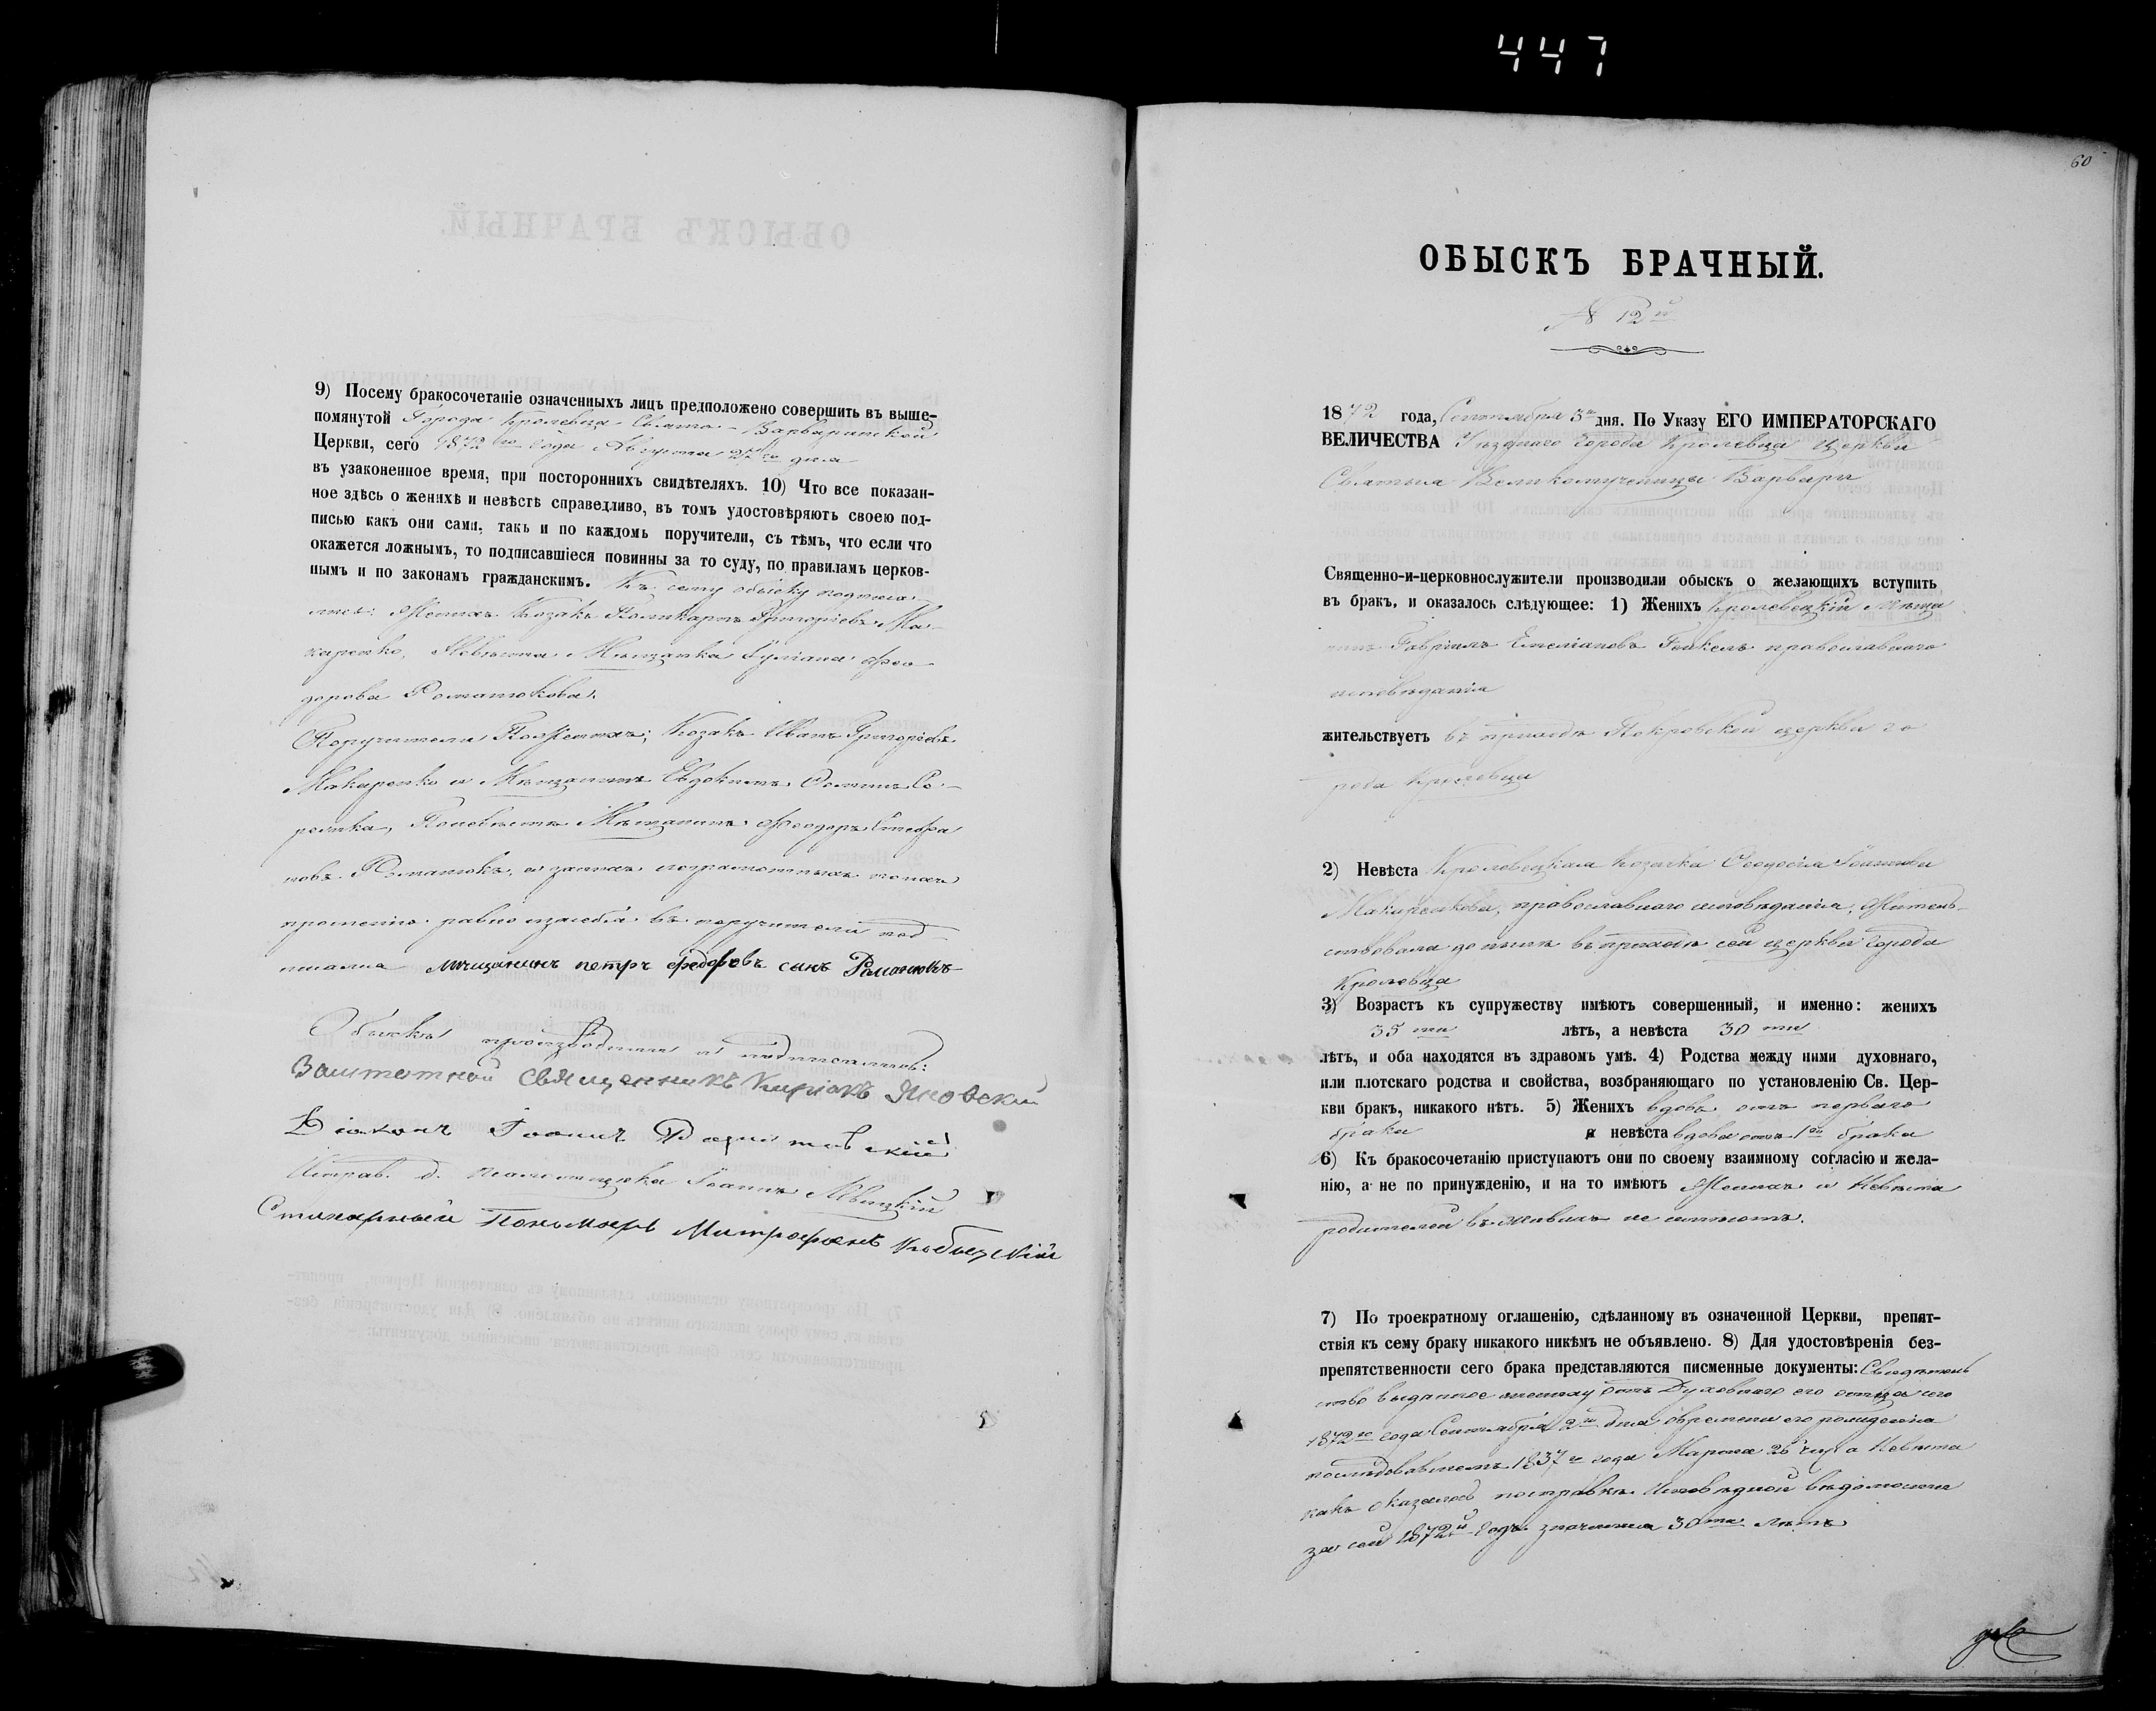 447
9) Посему бракосочетаніе означенныхъ лицъ предположено совершить въ выше-
помянутой Города Кролевца Свято-Варваринской
Церкви, сего 1872го года Августа 27го дня
въ узаконенное время, при постороннихъ свидѣтеляхъ. 10) Что все показан-
ное здѣсь о женихѣ и невѣстѣ справедливо, въ томъ удостовѣряютъ своею под-
писью какъ они сами, такъ и по каждомъ поручители, съ тѣмъ, что если что
окажется ложнымъ, то подписавшіеся повинны за то суду, по правиламъ церков-
нымъ и по законамъ гражданскимъ. Къ сему обыску подписа-
лись: Женихъ Козакъ Поликарпъ Григоріевъ Ма-
каренко, Невѣста Мѣщанка Іуліана Фео-
дорова Романюкова.
Поручители По Женихѣ; Козакъ Иванъ Григоріевъ
Макаренко и Мѣщанинъ Евдокимъ
По Невѣстѣ Мѣщанинъ Феодоръ Стефа
новъ Романюкъ, а за нихъ неграмотныхъ по ихъ
прошенію равно и за себя въ поручители под
писался мѣщанинъ петръ федоровъ сынъ Романюкъ
Обыскъ производили и подписались:
Заштатной Священникъ Киріакъ Яновскій
Діаконъ Іоаннъ
Исправ. д. псаломщика Іоаннъ Левицкій
Стихарный Пономарь Митрофанъ
60
ОБЫСКЪ БРАЧНЫЙ.
№ 12й
1872 года, Сентября 3го дня. По Указу ЕГО ИМПЕРАТОРСКАГО
ВЕЛИЧЕСТВА Уѣзднаго города Кролевца Церкви
Святыя Великомученицы Варвары
Священно-и-церковнослужители производили обыскъ о желающихъ вступить
въ бракъ, и оказалось слѣдующее: 1) Женихъ Кролевецкій Мѣща
нинъ Гавріилъ Емеліановъ православнаго
исповѣданія
жительствуетъ въ приходѣ Покровской церкви го
рода Кролевца
2) Невѣста Кролевецкая Козачка Феодосія Іоаннова
Макаренкова, православнаго исповѣданія, Житель-
ствовала до нынѣ въ приходѣ сей церкви города
Кролевца
3) Возрастъ къ супружеству имѣютъ совершенный, и именно: женихъ
35 ти лѣтъ, а невѣста 30 ти
лѣтъ, и оба находятся въ здравомъ умѣ. 4) Родства между ними духовнаго,
или плотскаго родства и свойства, возбраняющаго по установленію Св. Цер-
кви бракъ, никакого нѣтъ. 5) Женихъ вдовъ отъ перваго
брака а невѣста вдова отъ 1го брака
6) Къ бракосочетанію приступаютъ они по своему взаимному согласію и жела-
нію, а не по принужденію, и на то имѣютъ Женихъ и Невѣста
родителей въ живыхъ не имѣютъ.
7) По троекратному оглашенію, сдѣланному въ означенной Церкви, препят-
ствія къ сему браку никакого никѣмъ не объявлено. 8) Для удостовѣренія без-
препятственности сего брака представляются писменные документы: Свидѣтель
ство выданное жениху отъ Духовнаго его отца сего
1872го года Сентября 2го дня о времени его рожденія
послѣдовавшемъ 1837го года Марта 26 числа Невѣста
какъ оказалось по справкѣ Исповѣдной вѣдомости
за сей 1872й годъ значится 30ти лѣтъ